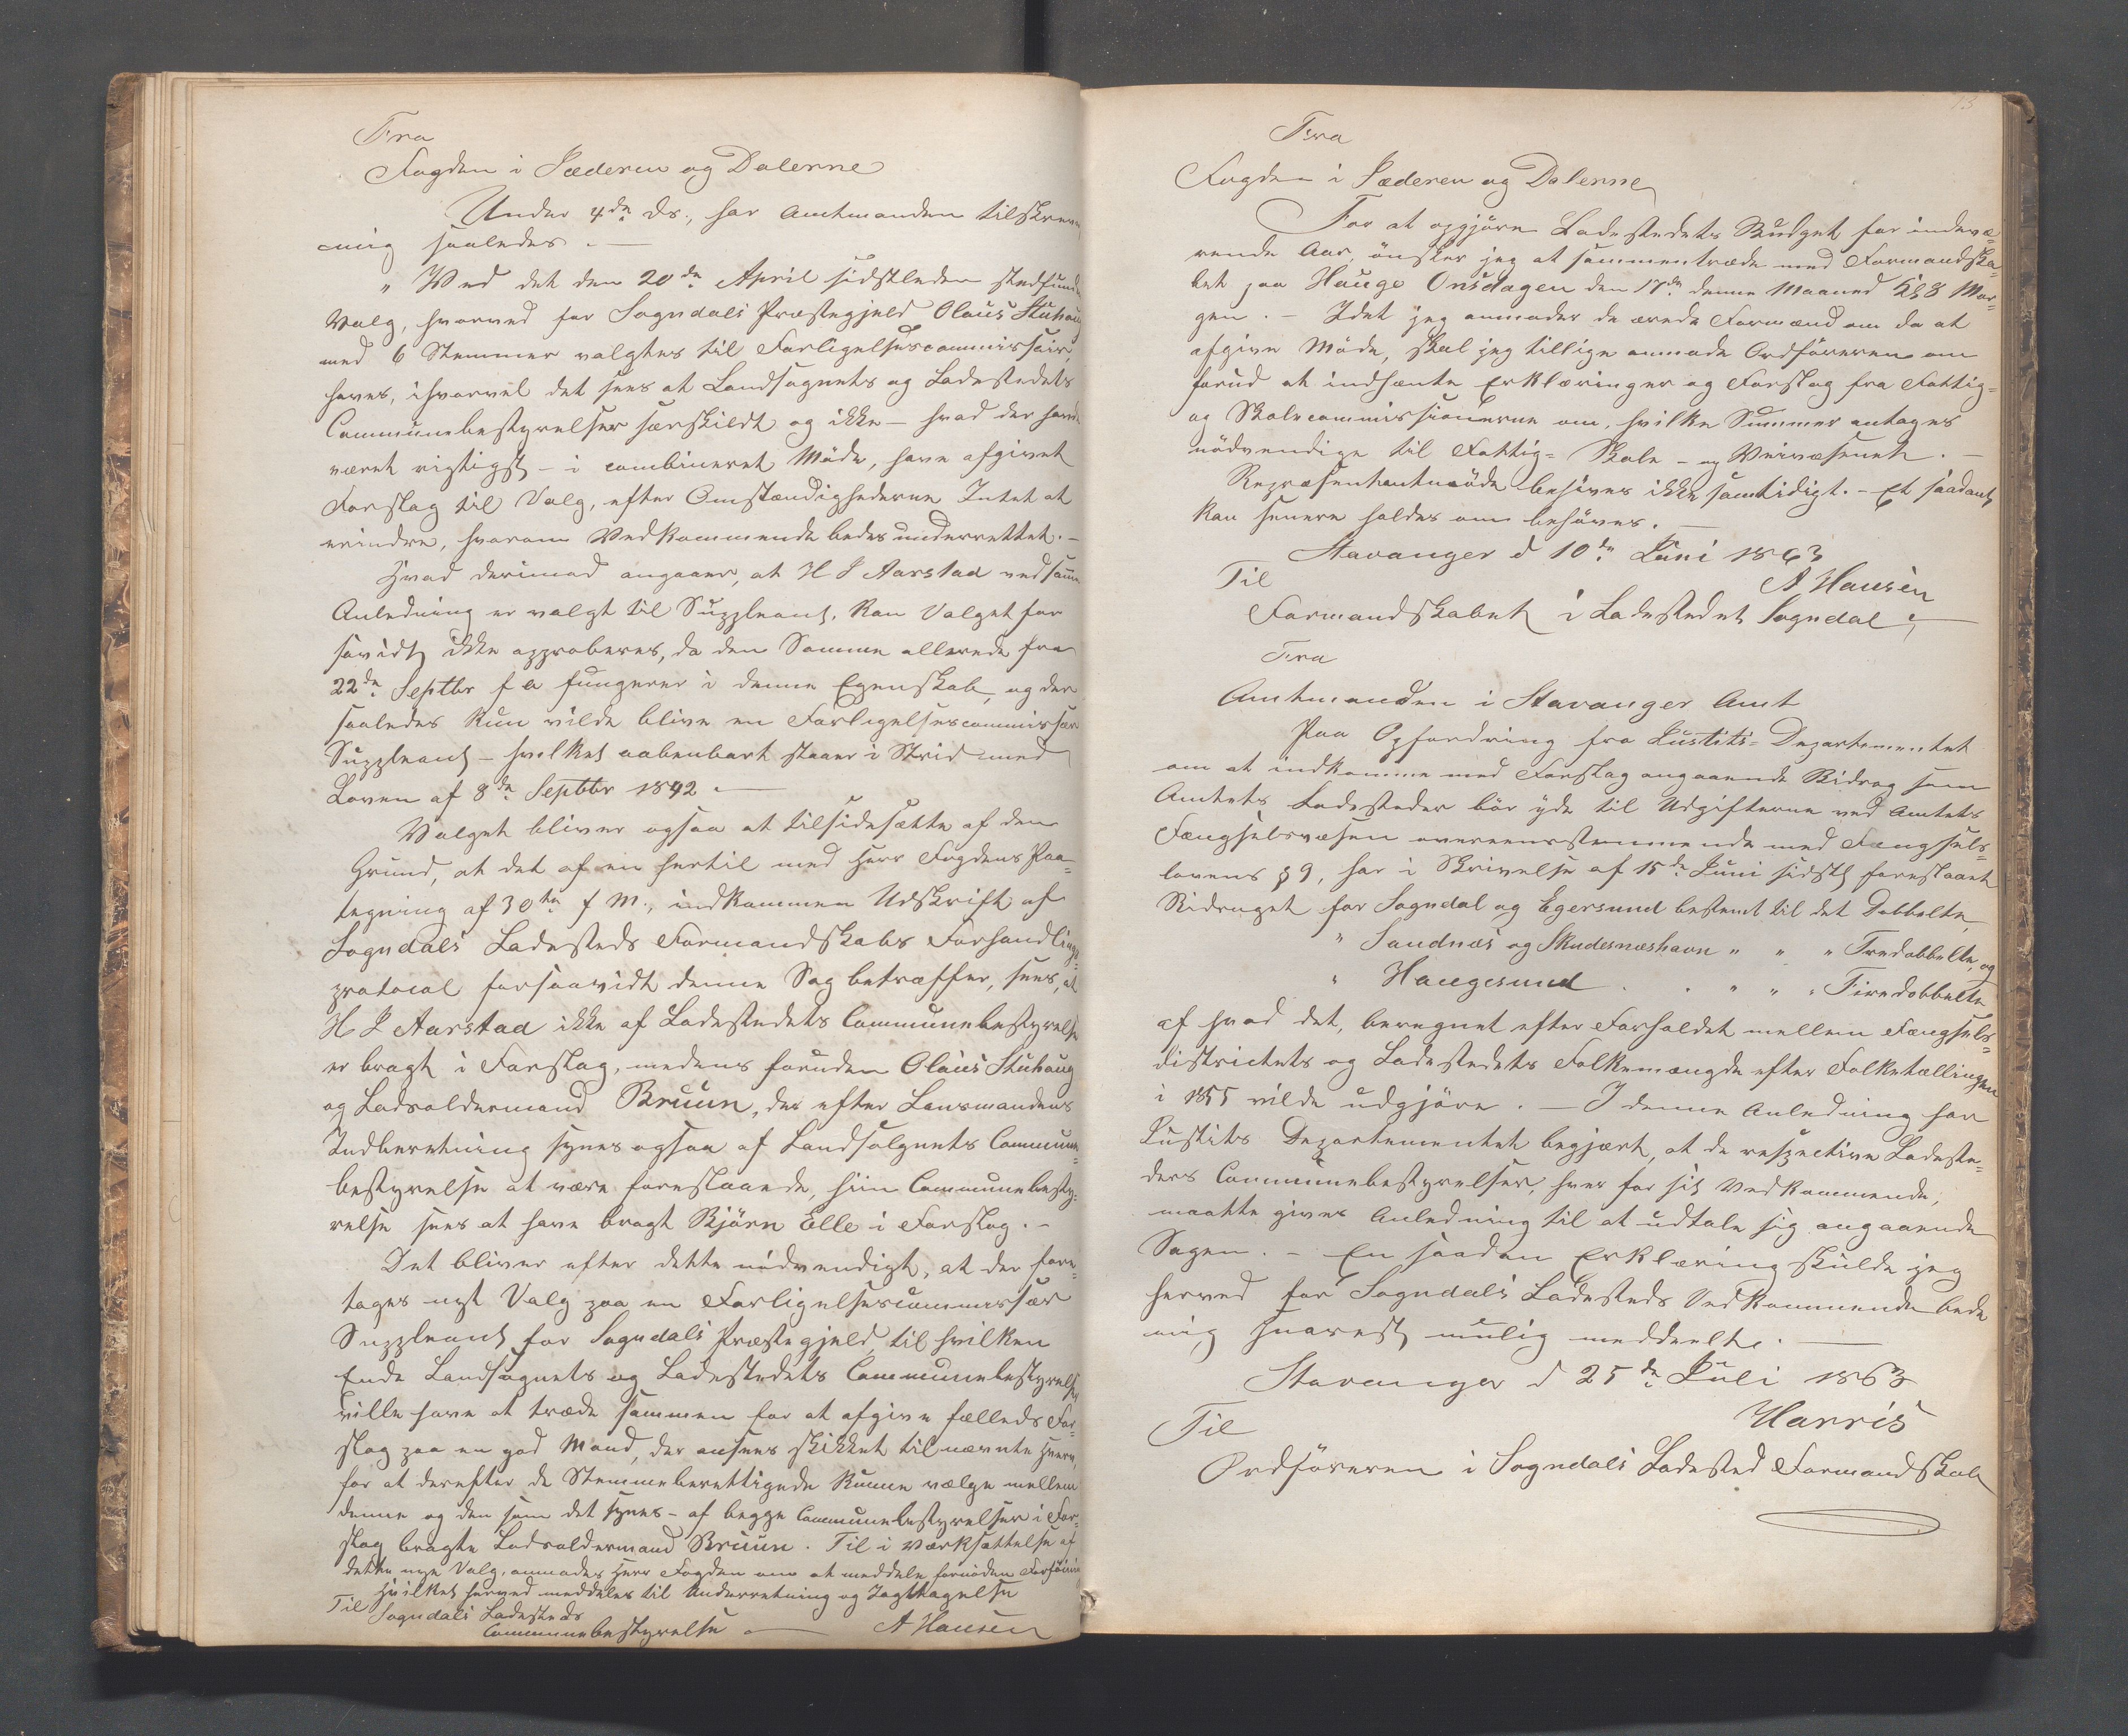 Fra
Fogden i Jæderen og Dalerne
Under 4de ds., har Amtmanden tilskrevet
mig saaledes. —
„Ved det den 20de April sidstleden stedfundne
Valg, hvorved for Sogndals Præstegjeld Olaus Stuhaug
med 6 Stemmer valgtes til Forligelsescommissair,
haves, ihvorvel det sees at Landsognets og Ladestedets
Communebestyrelser særskildt og ikke – hvad der havde
været rigtigst – i combineret Møde, have afgivet
Forslag til Valg, efter Omstændighederne Intet at
erindre, hvorom Vedkommende bedes underrettet. –
Hvad derimod angaaer, at H J Aarstad ved samme
Anledning er valgt til Suppleant, kan Valget for
saavidt ikke approberes, da den Samme allerede fra
22de Septbr f a fungerer i denne Egenskab, og der
saaledes kun vilde blive en Forligelsescommissær
Suppleant – hvilket aabenbart staaer i Strid med
Loven af 8de Septbr 1842. —
Valget bliver ogsaa at tilsidesætte af den
Grund, at det af en hertil med Herr Fogdens Paa-
tegning af 30te f M., indkommen Udskrift af
Sogndals Ladesteds Formandskabs Forhandlings-
protocol forsaavidt denne Sag betræffer, sees, at
H J Aarstad ikke af Ladestedets Communebestyrelse
er bragt i Forslag, medens foruden Olaus Stuhaug
og Lodsoldermand Bruun, der efter Lensmandens
Indberetning synes ogsaa af Landsognets Commune-
bestyrelse at være foreslaaede, hiin Communebesty-
relse sees at have bragt Björn Elle i Forslag. –
Det bliver efter dette nödvendigt, at der fore-
tages nyt Valg paa en Forligelsescommissær
Suppleant for Sogndals Præstegjeld, til hvilken
Ende Landsognets og Ladestedets Communebestyrelser
ville have at træde sammen for at afgive fælleds For-
slag paa en god Mand, der ansees skikket til nævnte Hverv,
for at derefter de Stemmeberettigede kunne vælge mellem
denne og den som det synes – af begge Communebestyrelser i For-
slag bragte Lodsoldermand Bruun. Til i værksættelse af
dette nye Valg, anmodes Herr Fogden om at meddele fornöden Forföining
Hvilket herved meddeles til Underretning og Iagttagelse
Til
Sogndals Ladesteds
Communebestyrelse. — A Hansen
13
Fra
Fogden i Jæderen og Dalerne
For at opgjöre Ladestedets Budget for indevæ-
rende Aar, önsker jeg at sammentræde med Formandska-
bet paa Hauge Onsdagen den 17de denne Maaned Kl 8 Mor-
gen. – Idet jeg anmoder de ærede Formænd om da at
afgive Möde, skal jeg tillige anmode Ordföreren om
forud at indhente Erklæringer og Forslag fra Fattig-
og Skolecommissionerne om, hvilke Summer antages
nödvendige til Fattig- Skole- og Veivæsenet. —
Repræsentantmöde behöves ikke samtidigt. – Et saadant
kan senere holdes om behöves. —
Stavanger d 10de Juni 1863
A Hansen
Til
Formandskabet i Ladestedet Sogndal,
Fra
Amtmanden i Stavanger Amt
Paa Opfordring fra Justits-Departementet
om at indkomme med Forslag angaaende Bidrag som
Amtets Ladesteder bör yde til Udgifterne ved Amtets
Fængselsvæsen overeensstemmende med Fængsels-
lovens § 9, har i Skrivelse af 15de Juni sidstl foreslaaet
Bidraget for Sogndal og Egersund bestemt til det Dobbelte,
" Sandnæs og Skudesnæshavn " " " Tredobbelte, og
" Haugesund " " " Firedobbelte
af hvad det, beregnet efter Forholdet mellem Fængsels-
districtets og Ladestedets Folkemængde efter Folketællingen
i 1855 vilde udgjöre. — I denne Anledning har
Justits Departementet begjært, at de respective Ladeste-
ders Communebestyrelser, hver for sit Vedkommende,
maatte gives Anledning til at udtale sig angaaende
Sagen. – En saadan Erklæring skulde jeg
herved for Sogndals Ladesteds Vedkommende bede
mig snarest mulig meddeelt. —
Stavanger d 25de Juli 1863
Harris
Til
Ordföreren i Sogndals Ladested Formandskab